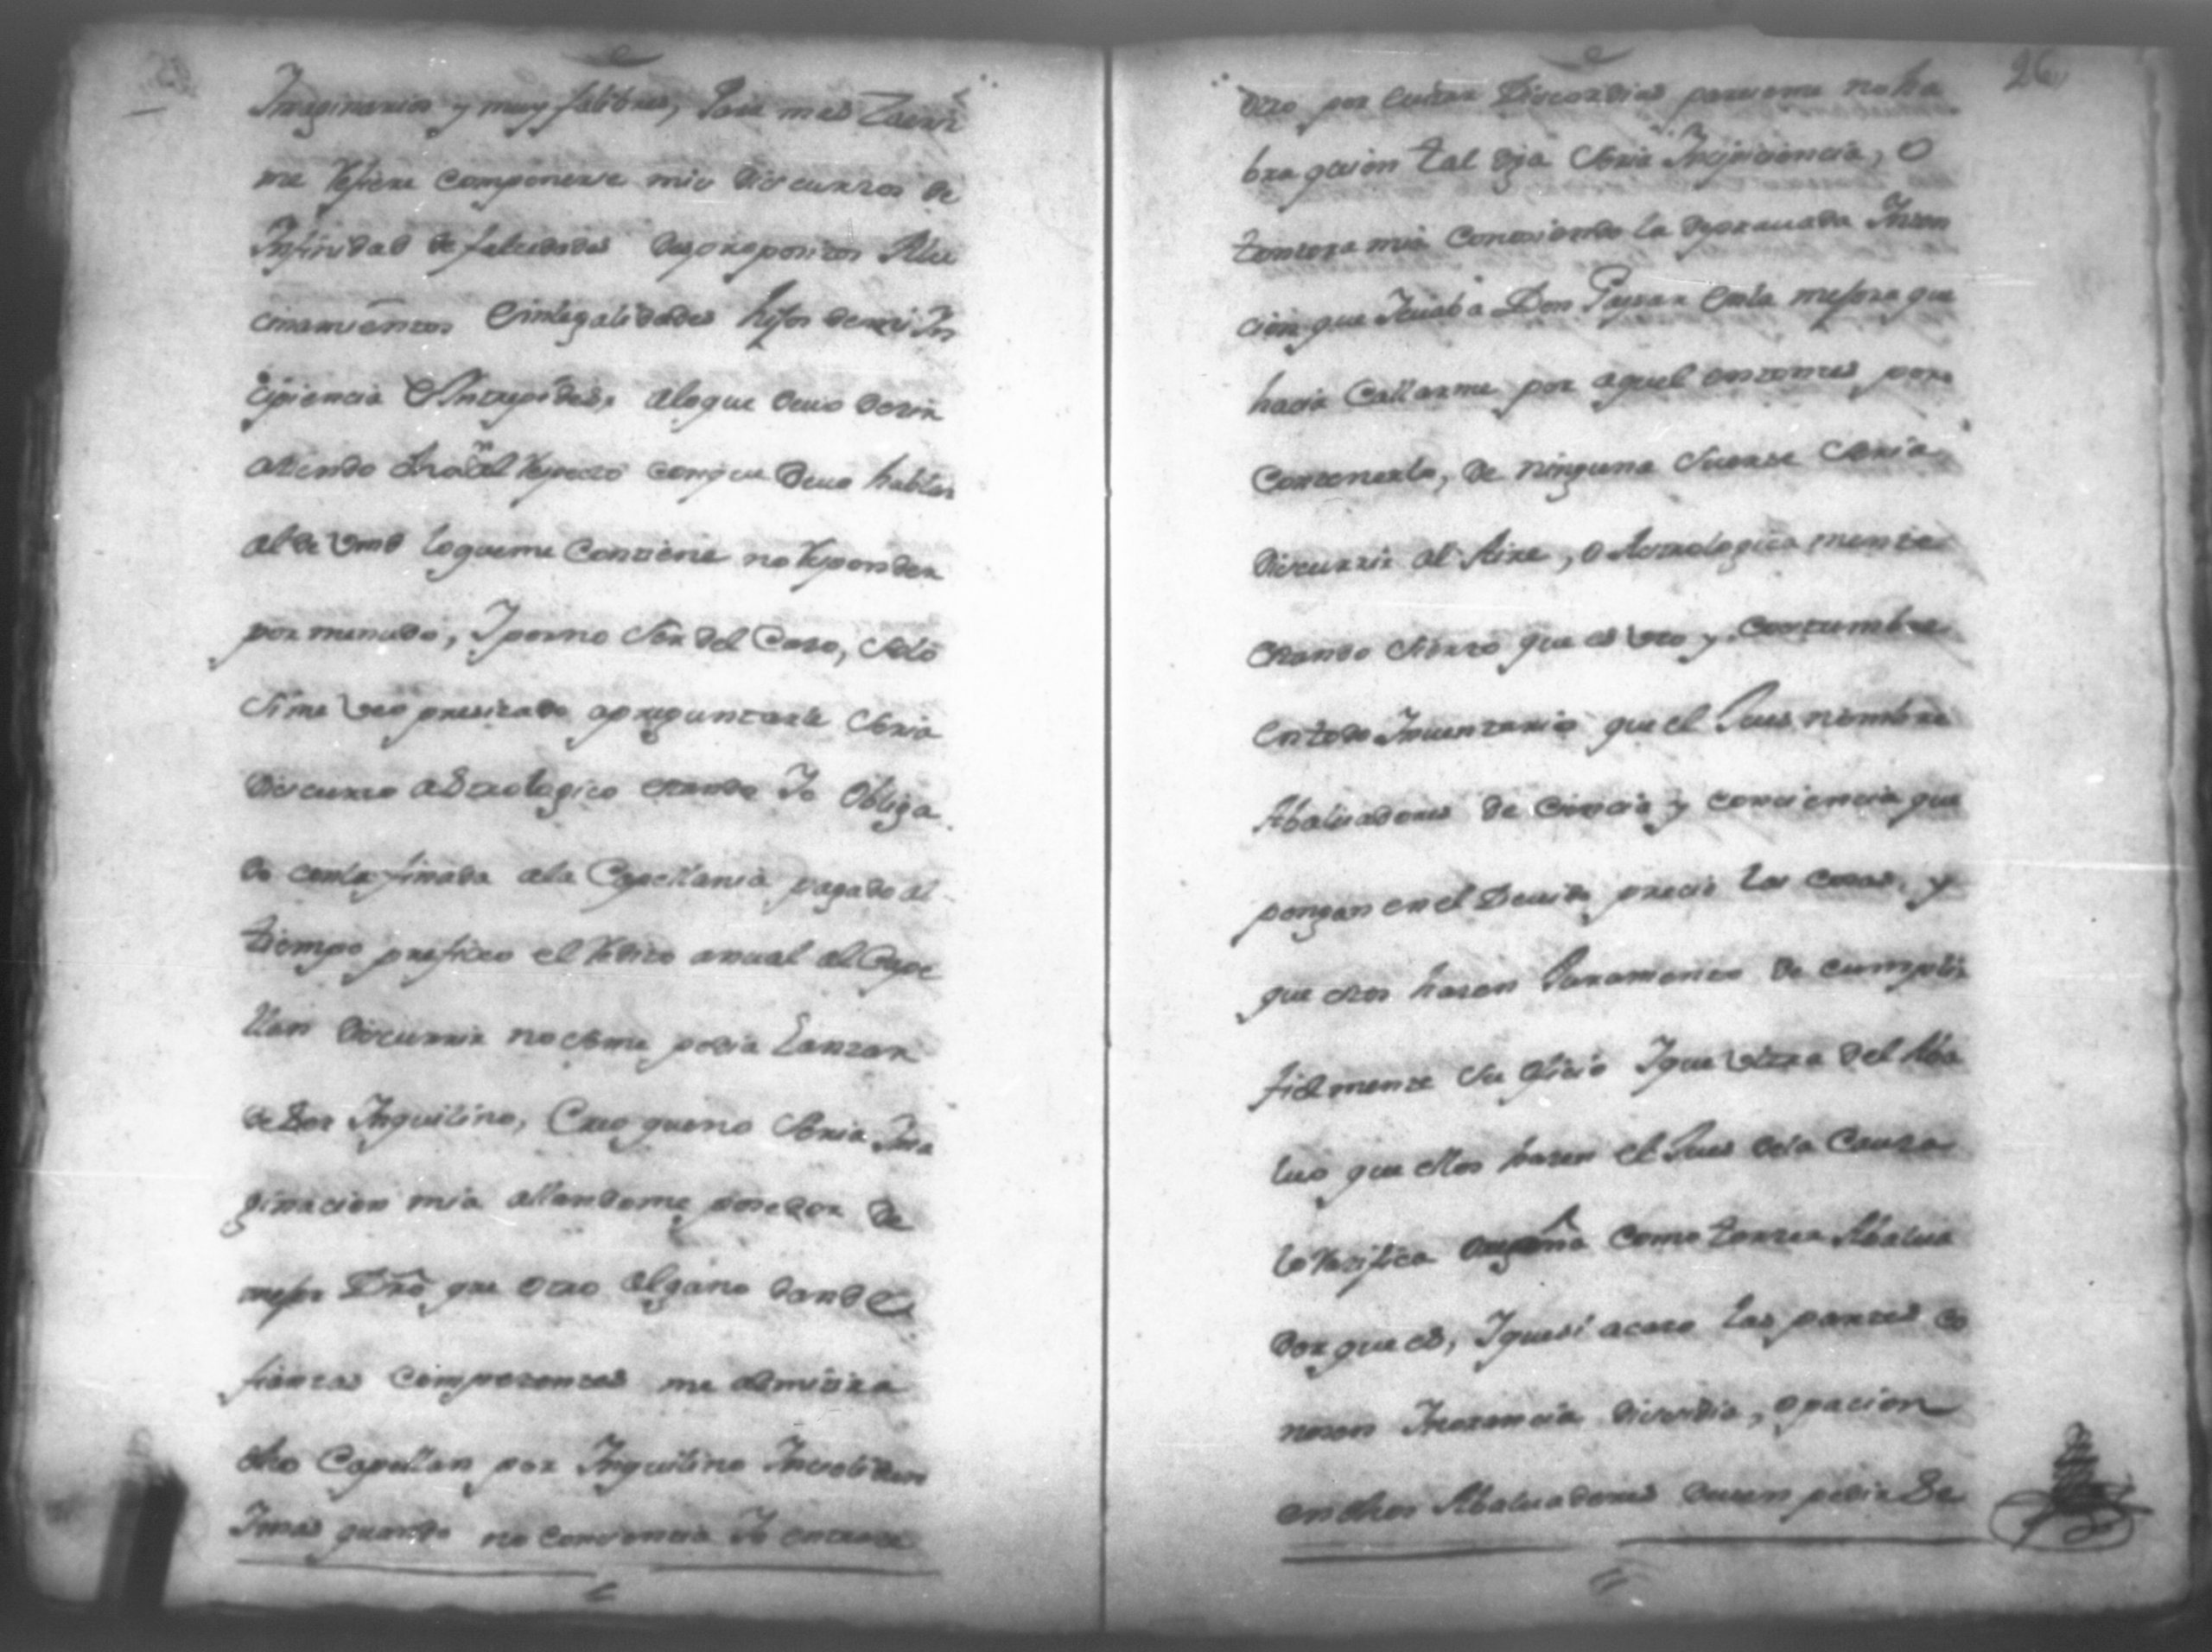 Imaginarios y muy falibles, Para mas
me refiere componerse mis discursos de
Infinidad de falcedades despropositos Alu
cinamientos Eintegalidades hijos demi In
cipiencia E Intrepides, aloque devo decir
atiendo al respecto conque devo hablar
al de Vmd loqueme Contiene no responder
por menudo, I porno Ser del Caso, Solo
Sime veo presizado apreguntarle Seria
discurso astrologico estando Io Obliga
do conla finada ala Capellania pagado al
tiempo prefixo el redito anual al Cape
llan discurrir no Seme podia Lanzar
de Inquilino, Creo queno Seria Ima
ginacion mia allandome posedor de
mejor Dro que otro alguno dando
fianzas competentes me admitira
dho Capellan por Inquilino
Imas quando no convencia Io entrase
26
otro por Evitar Discordias pareseme no ha
bra quien tal diga Seria Incipiencia, O
tontera mia Conosiendo la depravada Inten
cion que Ilevaba Don Enla mejora que
hacia Callarme por aquel entonces por
Contenerlo, de ninguna Suerte Seria
discurrir al Aire, o Astrologica mente
estando Sierto que es uso y Costumbre
entodo Inventario que el Jues nombre
Abaluadores de Ciencia y conciencia que
pongan en el Devido precio las cosas, y
que estos hacen Juramento de cumplir
fielmente Su Oficio Ique vista del Aba
luo que ellos hacen el Jues dela Causa
lo ratifica como tercer Abalua
dor que es, Iquesi acaso las partes co
nosen Inorancia desidia, o pacion
en dhos Abaluadores deven pedir Se